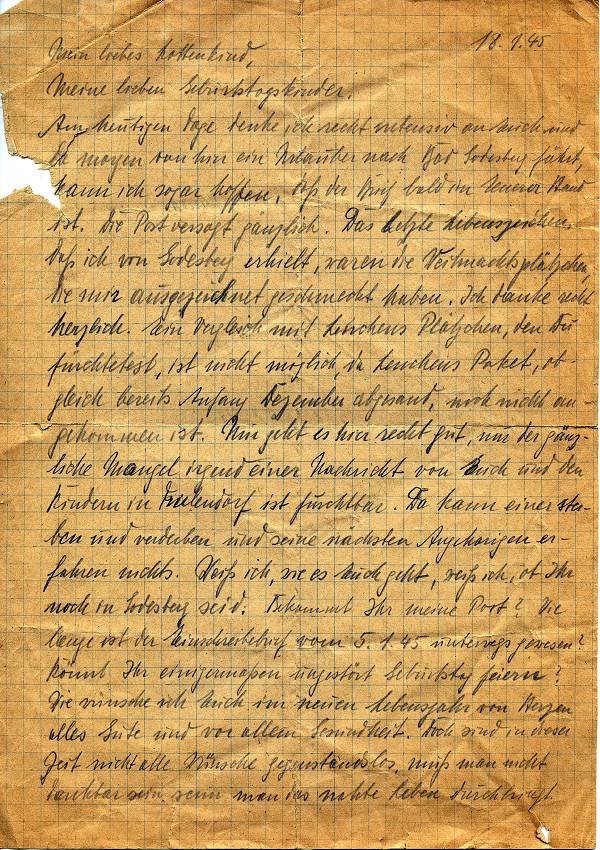 18.1.45
Mein liebes Lottenkind,
Meine lieben Geburtstagskinder.
Am heutigen Tage denke ich recht intensiv an Euch und
da morgen von hier ein Urlauber nach Bad Godesberg fährt,
kann ich sogar hoffen, daß der Brief bald in Eurer Hand
ist. Die Post versagt gänzlich. Das letzte Lebenszeichen,
daß ich von Godesberg erhielt, waren die Weihnachtsplätzchen,
die mir ausgezeichnet geschmeckt haben. Ich danke recht
herzlich. Ein Vergleich mit Lenchens Plätzchen, den Du
fürchtetest, ist nicht möglich, da Lenchens Paket, ob-
gleich bereits Anfang Dezember abgesand, noch nicht an-
gekommen ist. Mir geht es hier recht gut, nur der gänz-
liche Mangel irgend einer Nachricht von Euch und den
Kindern in ist furchtbar. Da kann einer ster-
ben und verderben und seine nächsten Angehörigen er-
fahren nichts. Weiß ich, wie es Euch geht, weiß ich, ob Ihr
noch in Godesberg seid. Bekommt Ihr meine Post? Wie
lange ist der Einschreibebrief vom 5.1.45 unterwegs gewesen?
Könnt Ihr einigermaßen ungestört Geburtstag feiern?
Wie wünsche ich Euch im neuen Lebensjahr von Herzen
alles Gute und vor allem Gesundheit. Doch sind in dieser
Zeit nicht alle Wünsche gegenstandslos, muß man nicht
dankbar sein, wenn man das nackte Leben durchbringt.